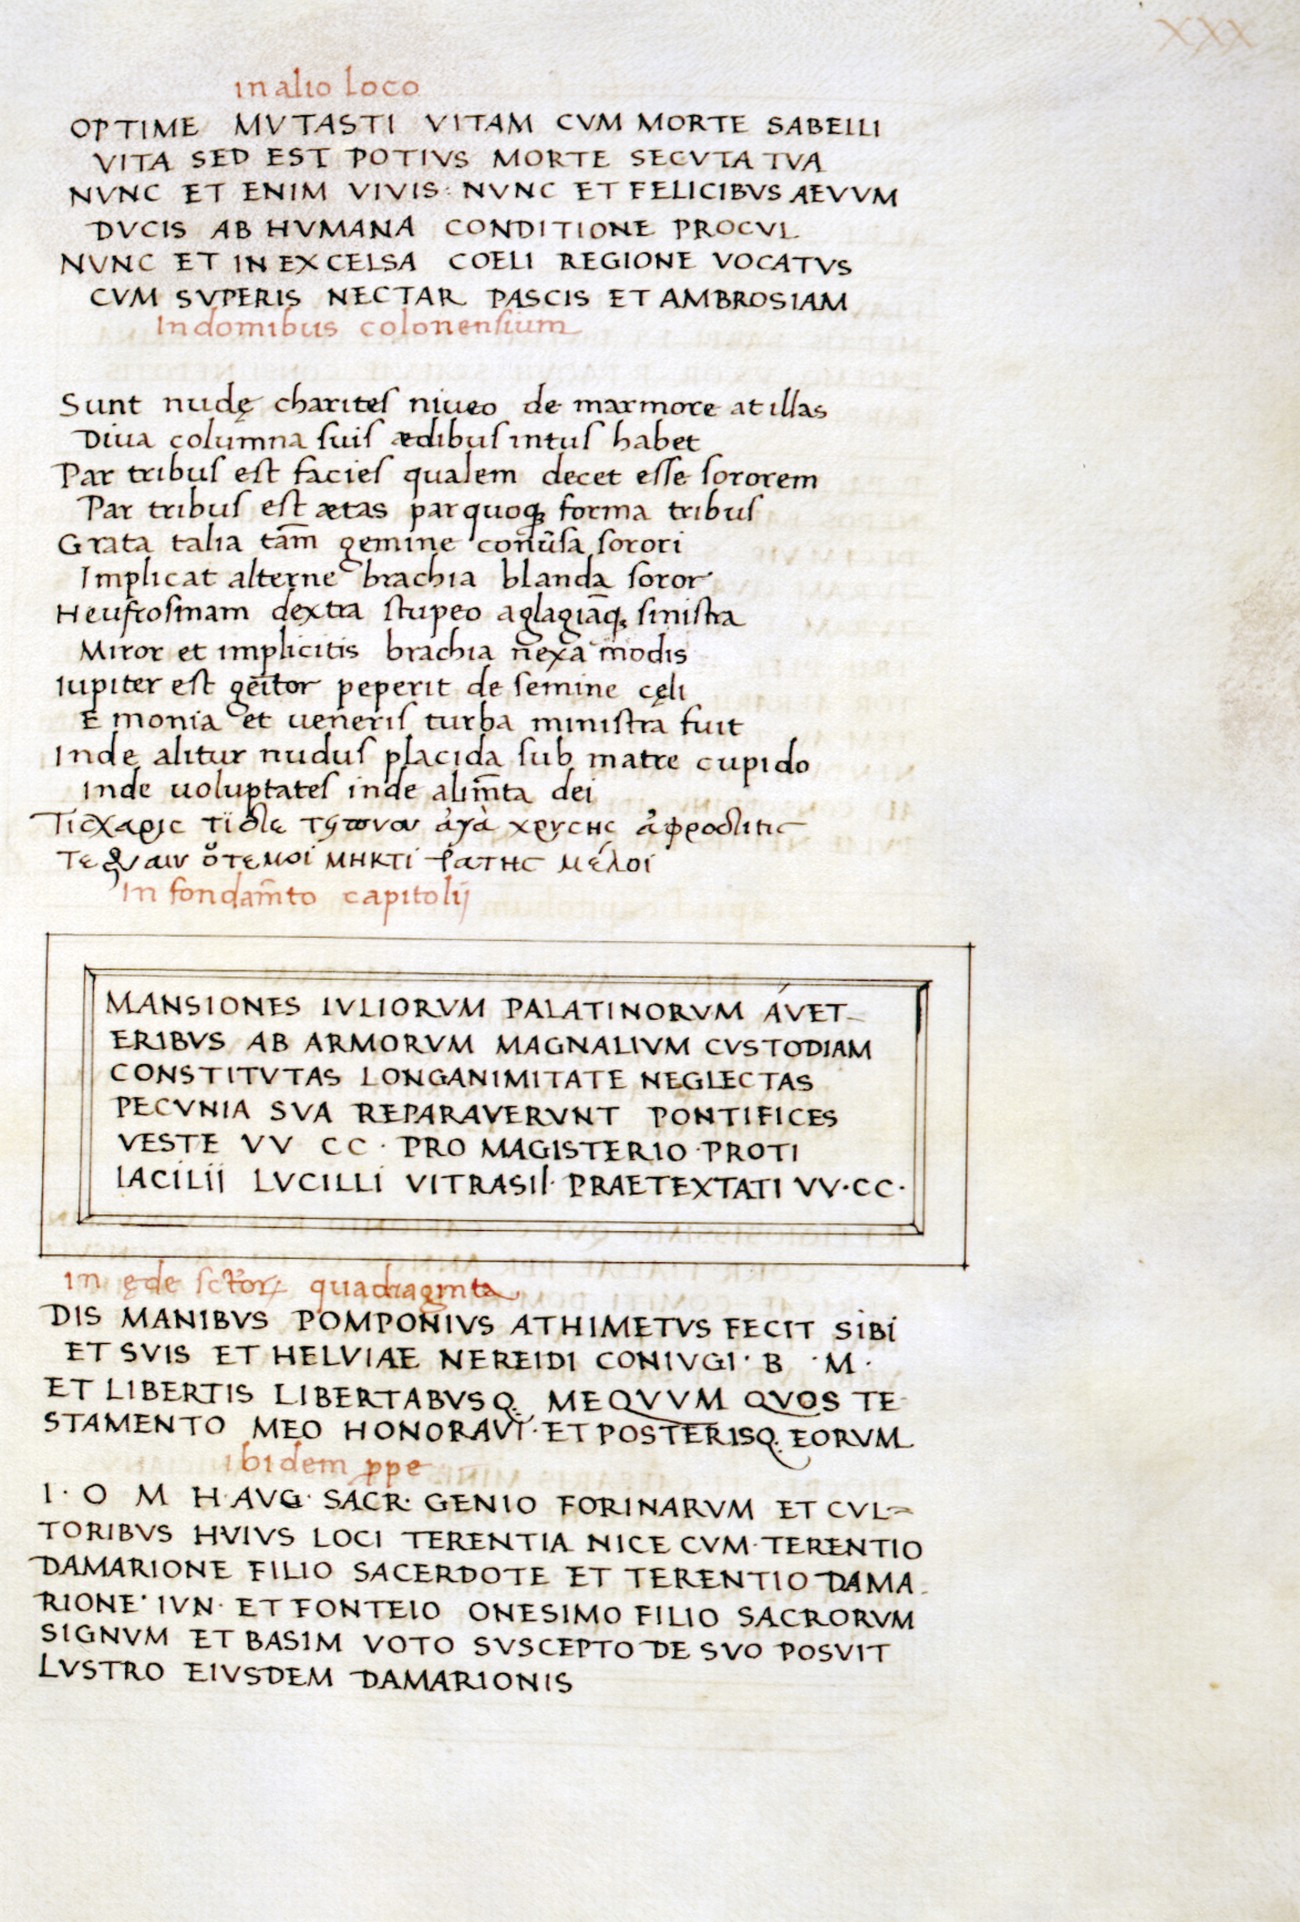 XXX
in alio loco
OPTIME MVTASTI VITAM CVM MORTE SABELLI
VITA SED EST POTIVS MORTE SECVTA TVA
NVNC ET ENIM VIVIS · NVNC ET FELICIBVS AEVVM
DVCIS AB HVMANA CONDITIONE PROCVL
NVNC ET IN EXCELSA COELI REGIONE VOCATVS
CVM SVPERIS NECTAR PASCIS ET AMBROSIAM
In domibus colonensium
Sunt nudę charites niueo de marmore at illas
Diua columna suis ædibus intus habet
Par tribus est facies qualem decet esse sororem
Par tribus est ætas par quoq; forma tribus
Grata talia tam̄ gemine con̄ūsa sorori
Implicat alterne brachia blanda soror
Heufrosinam dextra stupeo aglagiāq; sinistra
Miror et implicitis brachia nexa modis
Iupiter est geītor peperit de semine cęli
Emonia et ueneris turba ministra fuit
Inde alitur nudus placida sub matre cupido
Inde uoluptates inde alim̄ta dei
χρυσης
μέλοι
In fondam̄to capitolij
MANSIONES IVLIORVM PALATINORVM ÁVET
ERIBVS AB ARMORVM MAGNALIVM CVSTODIAM
CONSTITVTAS LONGANIMITATE NEGLECTAS
PECVNIA SVA REPARAVERVNT PONTIFICES
VESTE VV CC · PRO MAGISTERIO · PROTI
IACILII LVCILLI VITRASII · PRAETEXTATI VV · CC ·
in ęde quadraginta
DIS MANIBVS POMPONIVS ATHIMETVS FECIT SIBI
ET SVIS ET HELVIAE NEREIDI CONIVGI · B · M ·
ET LIBERTIS LIBERTABVSQ. MEQVVM QVOS TE
STAMENTO MEO HONORAVI · ET POSTERISQ. EORVM
ibidem ꝓpe
I · O M H · AVG · SACR : GENIO FORINARVM ET CVL
TORIBVS HVIVS LOCI TERENTIA NICE CVM · TERENTIO
DAMARIONE FILIO SACERDOTE ET TERENTIO DAMA
RIONE · IVN · ET FONTEIO ONESIMO FILIO SACRORVM
SIGNVM ET BASIM VOTO SVSCEPTO DE SVO POSVIT
LVSTRO EIVSDEM DAMARIONIS